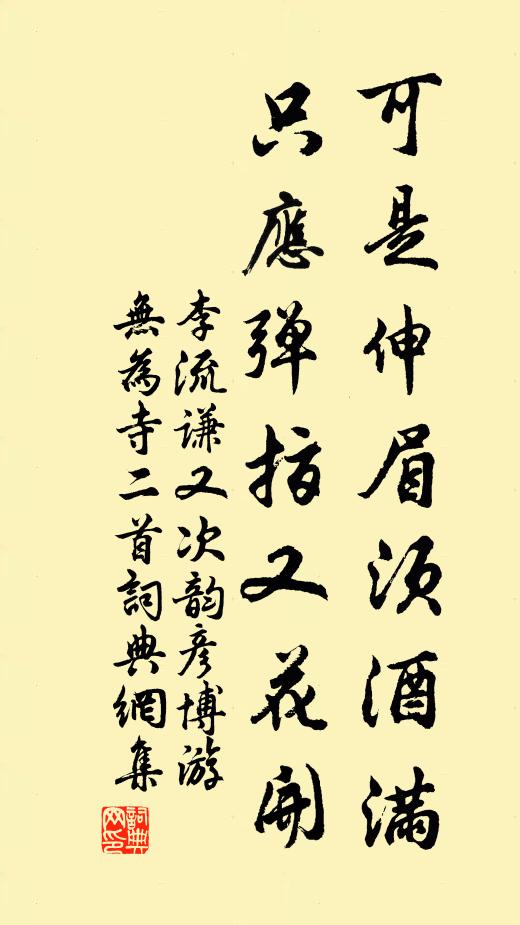 可是伸眉须酒满
只應弹指又花開
李流谦又次韵彦博游
無為寺二首詞典網集
詞典
网印